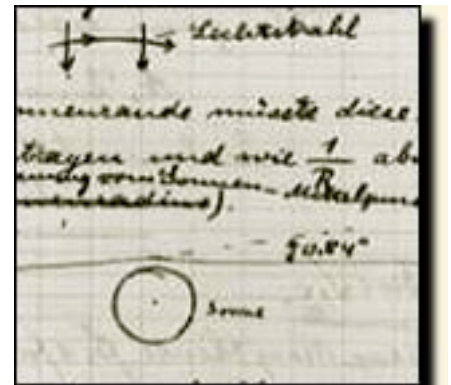 Lichtstrahl
nnenrande müsste diese
tragen und wie 1/R ab
nung vom Sonnen-Mittelpunk
nnenradius).
0.84"
Sonne